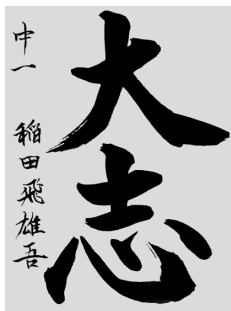 大志
中一　稲田飛雄吾